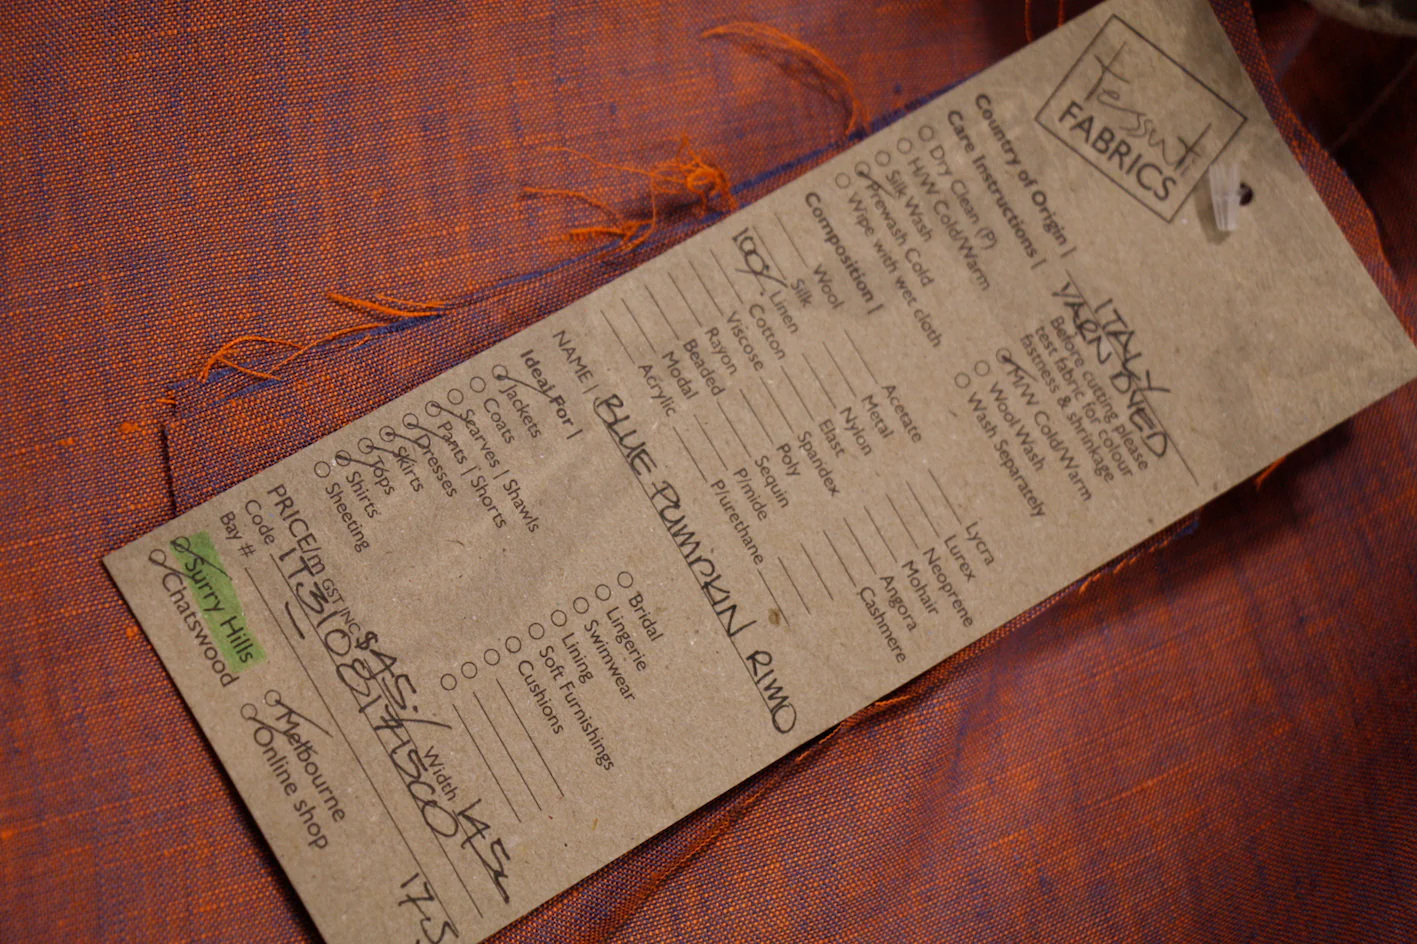 tessuti
FABRICS
Country of Origin | ITALY
YARN DYED
Care Instructions | Before cutting please
test fabric for colour
fastness & shrinkage
Dry Clean (P)
H/W Cold/Warm
Silk Wash
Prewash Cold
Wipe with wet cloth
M/W Cold/Warm
Wool Wash
Wash Separately
Composition |
Wool
Silk
100% Linen
Cotton
Viscose
Rayon
Beaded
Modal
Acrylic
Acetate
Metal
Nylon
Elast
Spandex
Poly
Sequin
P/mide
P/urethane
Lycra
Lurex
Neoprene
Mohair
Angora
Cashmere
NAME | BLUE PUMPKIN RIMO
Ideal For |
Jackets
Coats
Scarves | Shawls
Pants | Shorts
Dresses
Skirts
Tops
Shirts
Sheeting
Bridal
Lingerie
Swimwear
Lining
Soft Furnishings
Cushions
PRICE/m GST INC $45/ Width 145
Code
Bay #
Surry Hills
Chatswood
Melbourne
Online shop